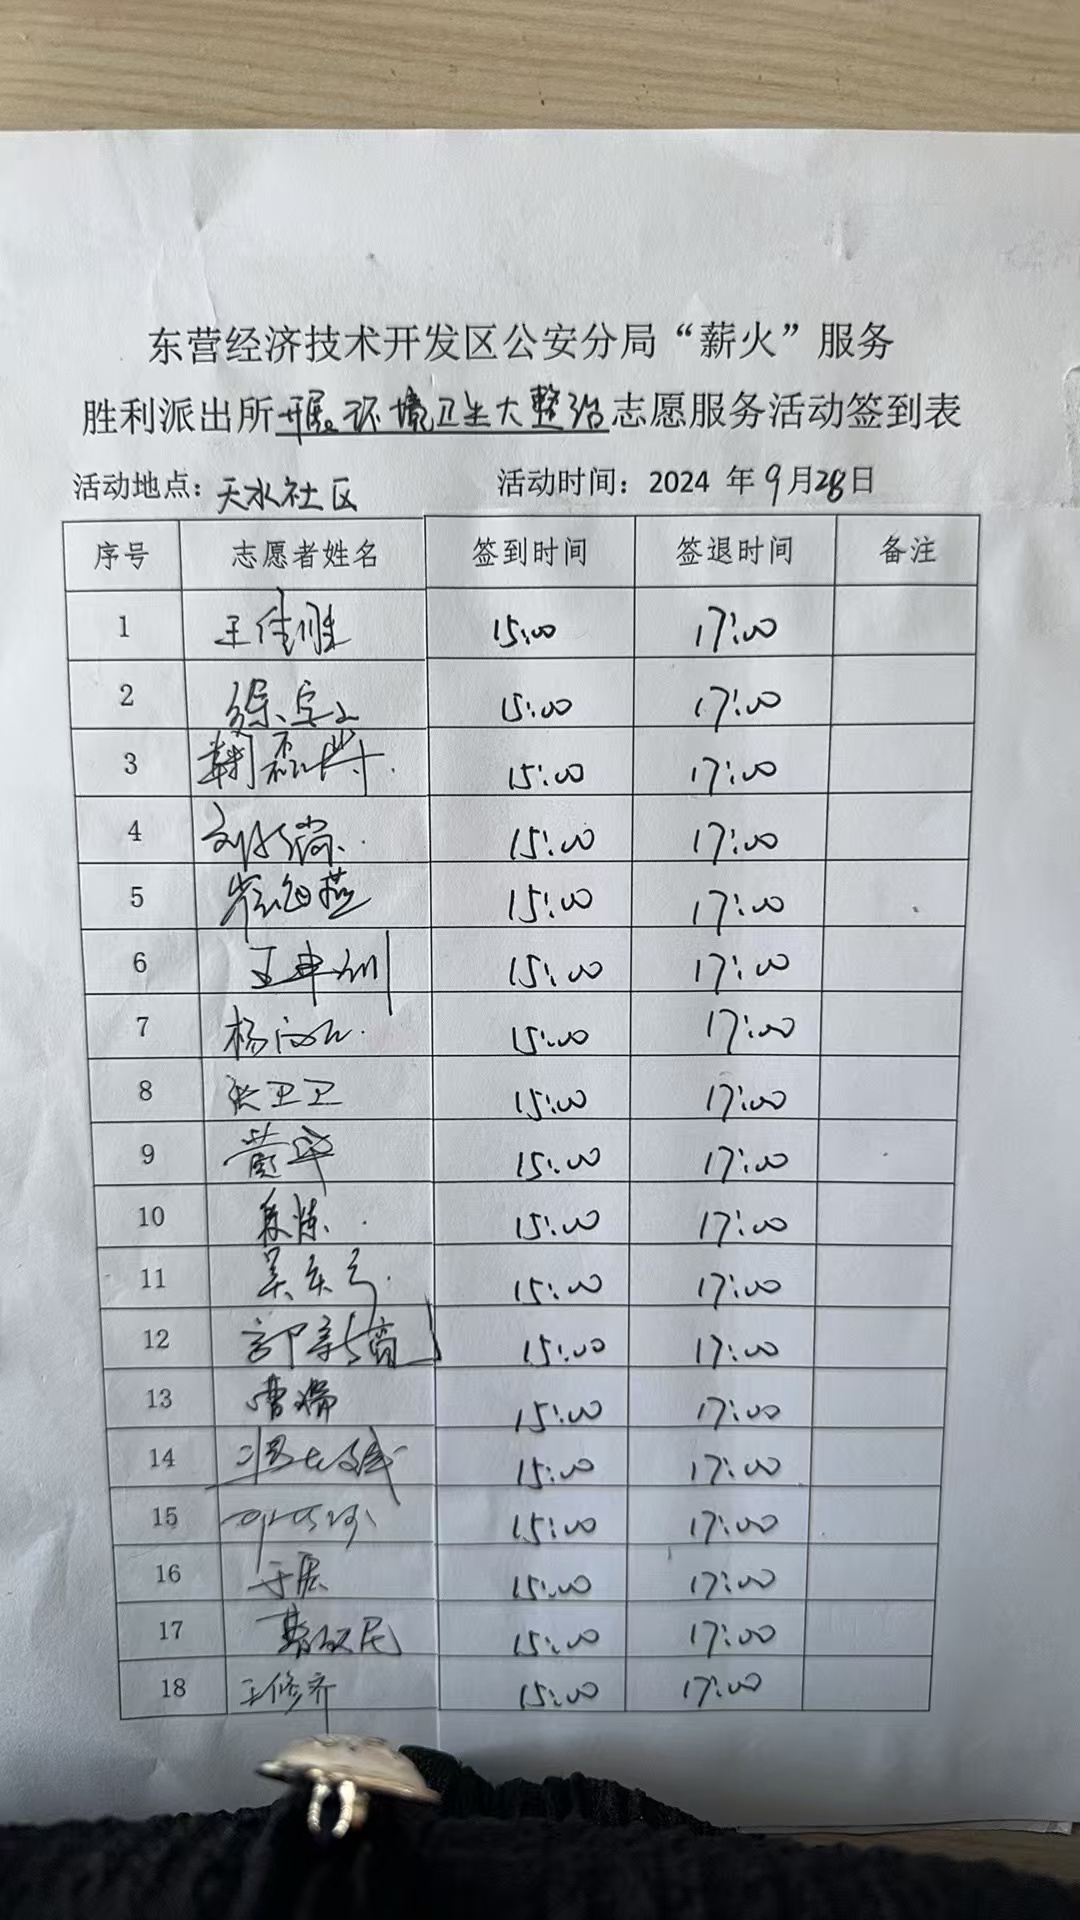 东营经济技术开发区公安分局“薪火”服务
胜利派出所开展环境卫生大整治志愿服务活动签到表
活动地点：天水社区 活动时间：2024 年9月28日
序号 志愿者姓名 签到时间 签退时间 备注
1 王佳胜 15:00 17:00
2 15:00 17:00
3 15:00 17:00
4 15:00 17:00
5 15:00 17:00
6 15:00 17:00
7 15:00 17:00
8 张卫卫 15:00 17:00
9 15:00 17:00
10 15:00 17:00
11 15:00 17:00
12 15:00 17:00
13 曹瑞 15:00 17:00
14 15:00 17:00
15 15:00 17:00
16 15:00 17:00
17 15:00 17:00
18 王修齐 15:00 17:00